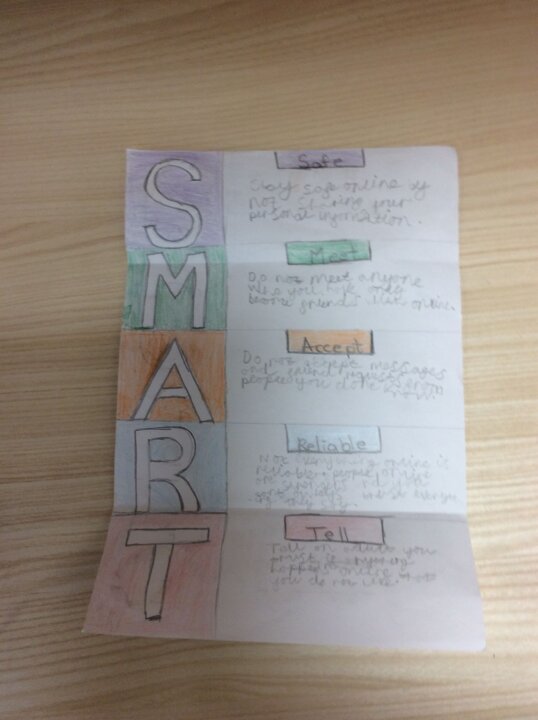 S
Safe
Stay safe online by
not sharing your
personal information.
M
Meet
Do not meet anyone
who you have only
become friends with online.
A
Accept
Do not accept messages
and friend requests from
people you don't know.
R
Reliable
Not everything online is
reliable people online
T
Tell
Tell an adult you
trust if anything
happens online that
you do not like.